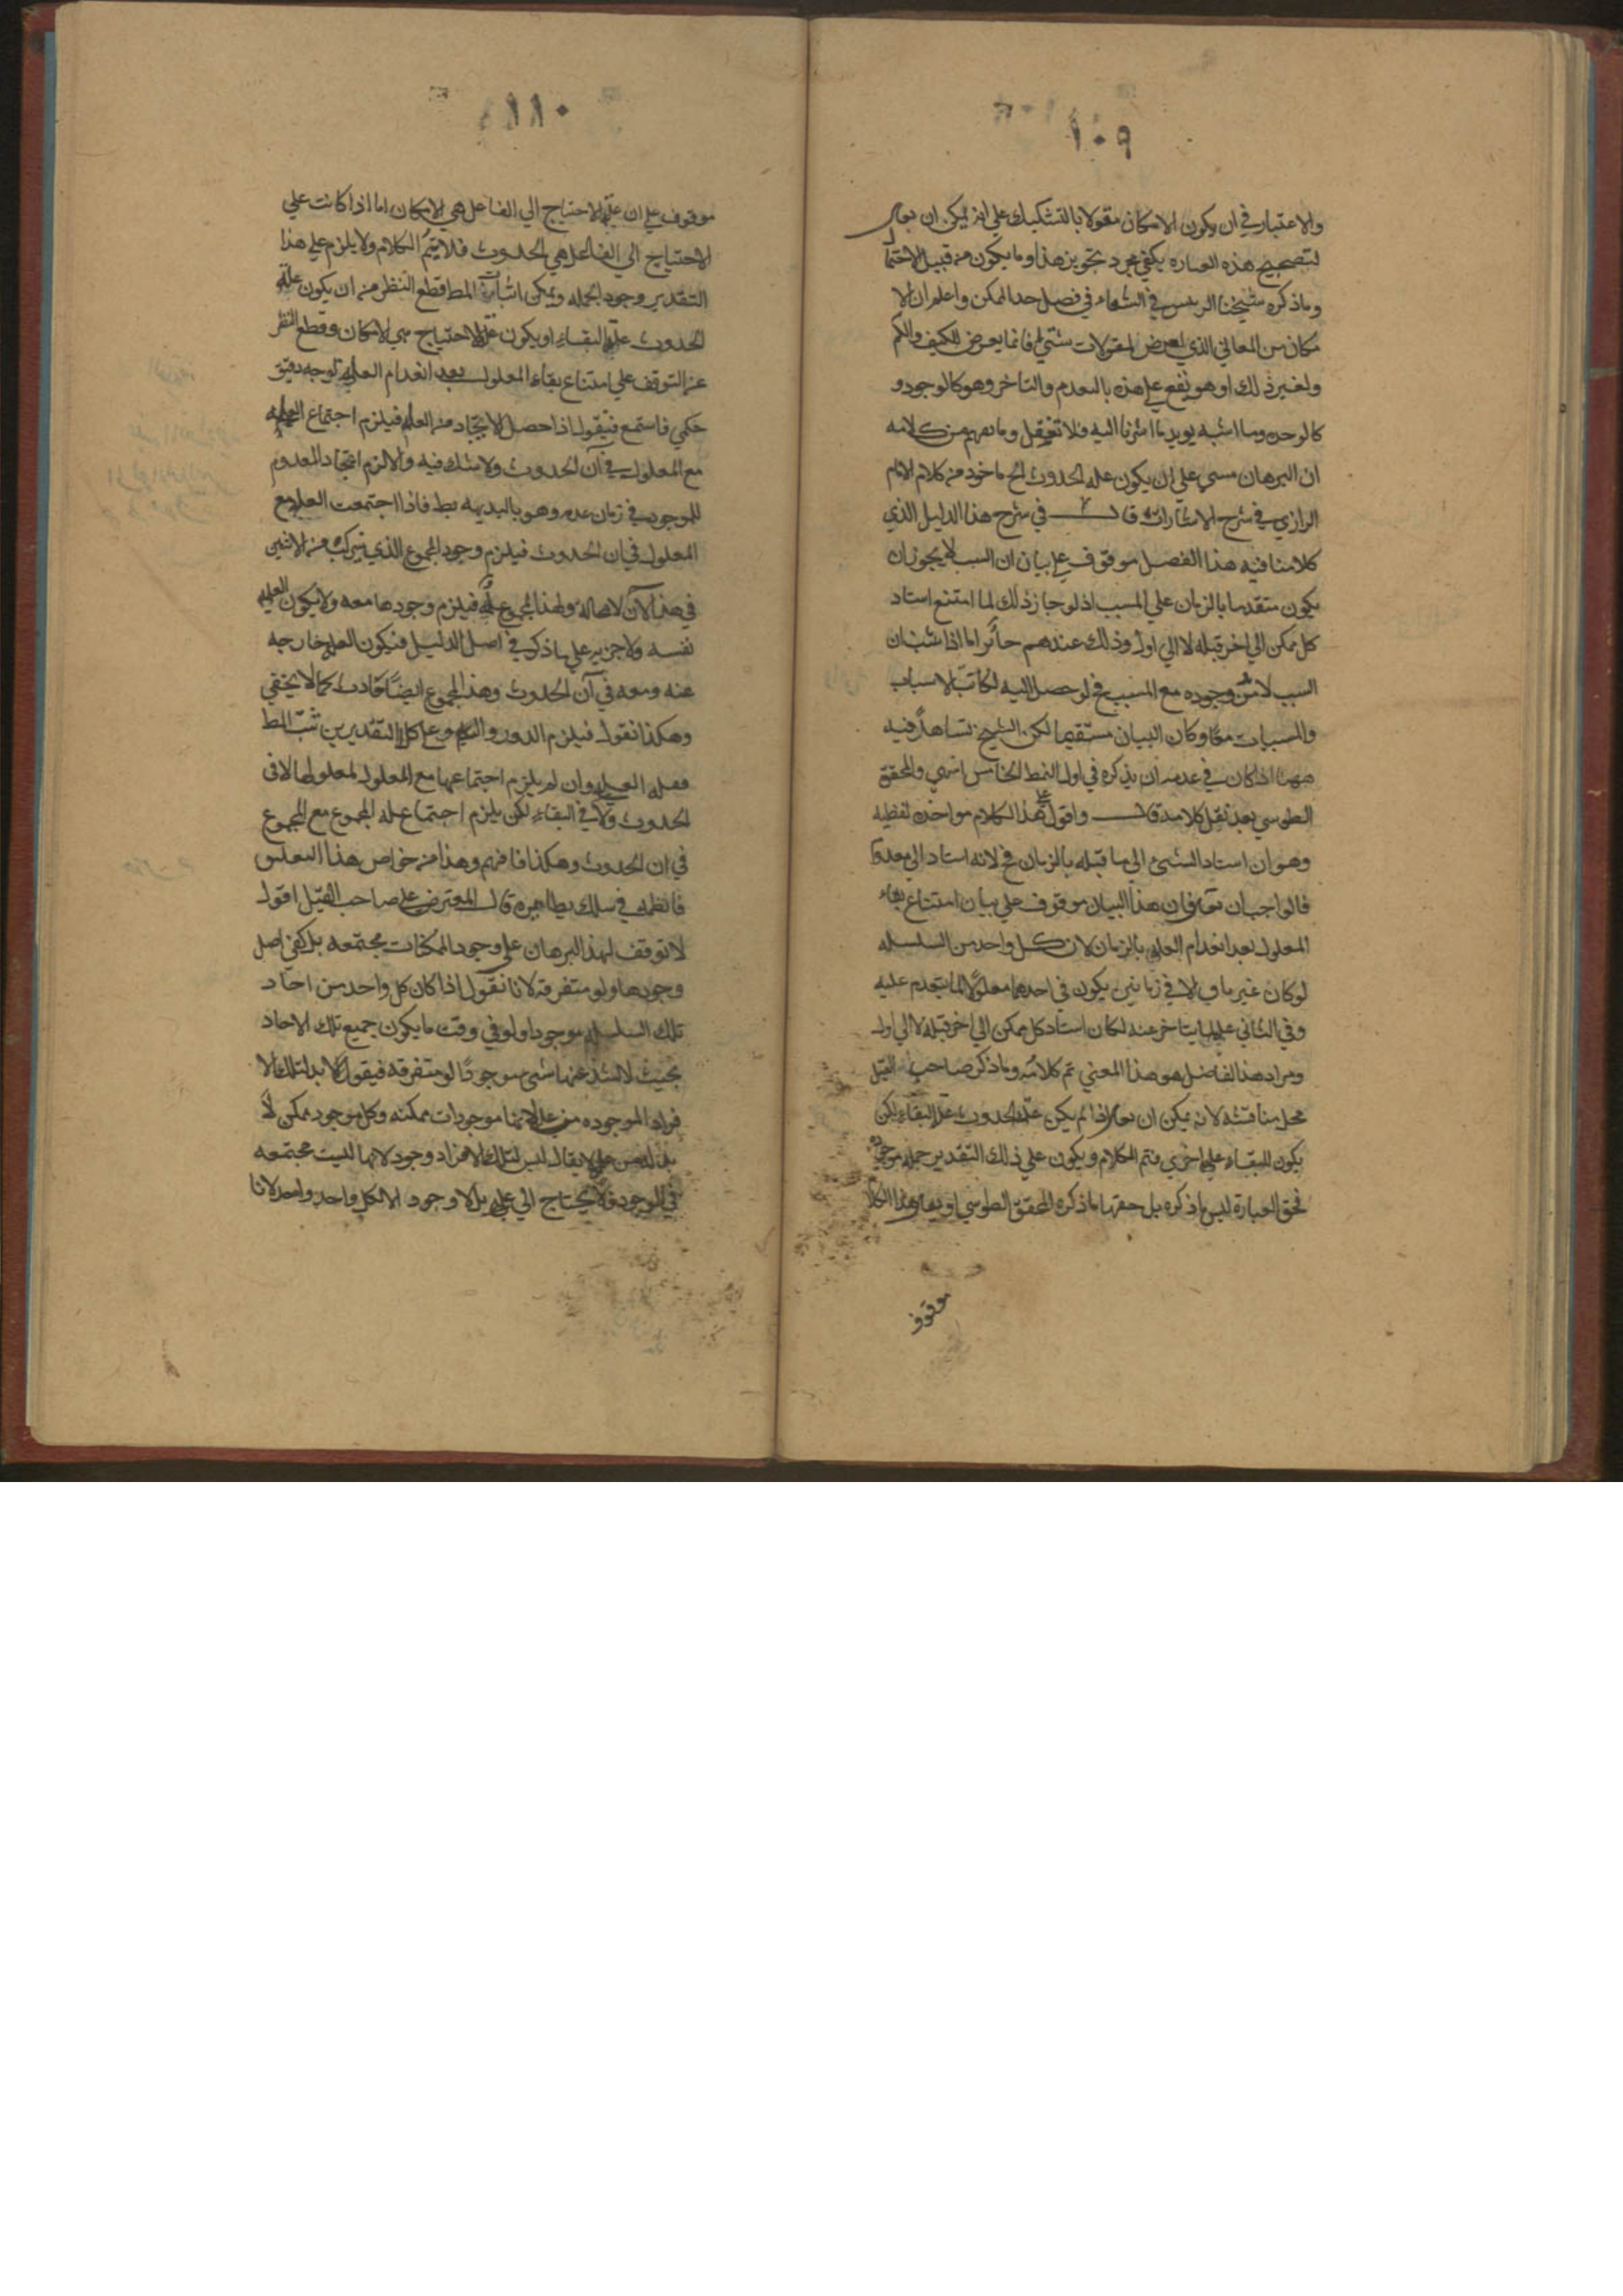 ١٠٩
والاعتبار في ان يكون الامكان مقولا بالتشكيك علي انه يمكن ان يقال
لتصحيح هذه العباره يكفي مجرد تجويز هذا وما يكون من قبيل الاحتما
وما ذكره شيخنا الرييس في الشفاء في فصل حد الممكن واعلم ان الا
مكان من المعاني الذي لعرض لمقولات شتي فانما يعرض للكيف والكم
ولغير ذلك او هو يقع علي هذه بالتقدم والتاخر وهو كالوجود و
كالوحده وما اشبه يويد ما اشرنا اليه فلا تغفل وما يفهم من كلامه
ان البرهان مبني علي ان يكون عله الحدوث الخ ماخوذ من كلام الامام
الرازي في شرح الاشارات قال في شرح هذا الدليل الذي
كلامنا فيه هذا الفصل موقوف علي بيان ان السبب لا يجوز ان
يكون متقدما بالزمان علي المسبب اذ لو جاز ذلك لما امتنع اسناد
كل ممكن الي اخر قبله لا الي اول وذلك عندهم جائز اما اذا ثبت ان
السبب لابد من وجوده مع المسبب فح لو حصل اليه لكانت الاسباب
والمسببات معا وكان البيان مستقيما لكن الشيخ تساهل فيه
ههنا اذا كان في عزمه ان يذكره في اول النمط الخامس انتهي والمحقق
الطوسي بعد نقل كلامه قال واقول علي هذا الكلام مواخذه لفظيه
وهو ان اسناد الشيء الي ما قبله بالزمان مح لانه اسناد الي معدوم
فالواجب ان يقول ان هذا البيان موقوف علي بيان امتناع بقاء
المعلول بعد انعدام العله بالزمان لان كل واحد من السلسله
لو كان غير باق الا في زمانين يكون في احدهما معلولا لما يتقدم عليه
وفي الثاني عله لما يتاخر عنه لكان اسناد كل ممكن الي اخر قبله لا الي اول
ومراد هذا الفاضل هو هذا المعني تم كلامه وما ذكر صاحب القيل
محل مناقشه لانه يمكن ان يقال اذا لم يكن عله الحدوث عله البقاء لكن
يكون للبقاء عله اخري فتم الكلام ويكون علي ذلك التقدير جمله موجوده
فحق العباره ليس ما ذكره بل حقها ما ذكره المحقق الطوسي او يقال هذا الكلا
موقوف
١١٠
موقوف علي ان عله الاحتياج الي الفاعل هي الامكان اما اذا كانت علي
الاحتياج الي الفاعل هي الحدوث فلا يتم الكلام ولا يلزم علي هذا
التقدير وجود الجمله ويمكن اثبات المط قطع النظر من ان يكون عله
الحدوث عله البقاء او يكون عله الاحتياج هي الامكان وقطع النظر
عن التوقف علي امتناع بقاء المعلول بعد انعدام العله لوجه دقيق
حكمي فاستمع فنقول اذا حصل الايجاد من العله فيلزم اجتماع العله
مع المعلول في آن الحدوث ولا شك فيه والا لزم ايجاد المعدوم
للموجود في زمان عدمه وهو بالبديهه بط فاذا اجتمعت العله مع
المعلول في ان الحدوث فيلزم وجود المجموع الذي تركب من الاثنين
في هذا الآن لا محاله ولهذا المجموع عله فيلزم وجودها معه ولا يكون العله
نفسه ولا جزءه علي ما ذكر في اصل الدليل فيكون العله خارجه
عنه ومعه في آن الحدوث وهذا المجموع ايضا حادث كما لا يخفي
وهكذا نقول فيلزم الدور والتس وعلي كل التقديرين ثبت المط
فعله العله وان لم يلزم اجتماعها مع المعلول لمعلولها لا في
الحدوث ولا في البقاء لكن يلزم اجتماع عله المجموع مع المجموع
في ان الحدوث وهكذا فافهم وهذا من خواص هذا التعليق
فانظمه في سلك نظايره قال المعترض علي صاحب القيل اقول
لا توقف لهذا البرهان علي وجود الممكنات مجتمعه بل يكفي اصل
وجودها ولو متفرقه لانا نقول اذا كان كل واحد من احاد
تلك السلسله موجودا ولو في وقت ما يكون جميع تلك الاحاد
بحيث لا يشذ عنها شيء موجودا لو متفرقه فيقول لا بد لتلك الا
فراد الموجوده من عله لانها موجودات ممكنه وكل موجود ممكن لا
بد له من عله لا يقال ليس لتلك الافراد وجود لانها ليست مجتمعه
في الوجود فلا يحتاج الي عله بل لا وجود الا لكل واحد واحد لانا